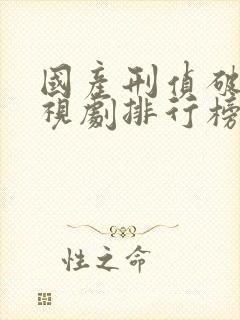 國產刑偵破
視劇排行榜
性之命